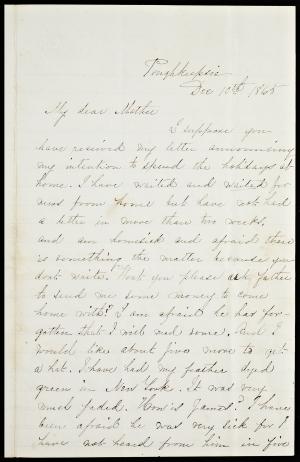 Poughkeepsie
Dec 10th 1865
My dear Mother
I suppose you
have received my letter announcing
my intention to spend the holidays at
home. I have waited and waited for
news from home but have not had
a letter in more than two weeks.
and am homesick and afraid there
is something the matter because you
dont write. Wont you please ask father
to send me some money to come
home with? I am afraid he has for-
gotten that I will need some. And I
would like about five more to get
a hat. I have had my feather dyed
green in New York. it was very
much faded. How is James? I have
been afraid he was very sick for I
have not heard from him in five